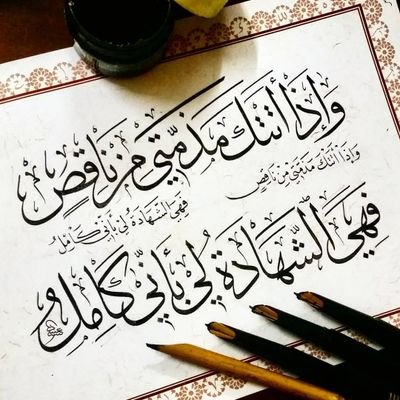 وَإِذَا أَتَتْكَ مَذَمَّتِي مِنْ نَاقِصٍ
وَإِذَا أَتَتْكَ مَذَمَّتِي مِنْ نَاقِصٍ
فَهِيَ الشَّهَادَةُ لِي بِأَنِّي كَامِلُ
فَهِيَ الشَّهَادَةُ لِي بِأَنِّي كَامِلُ